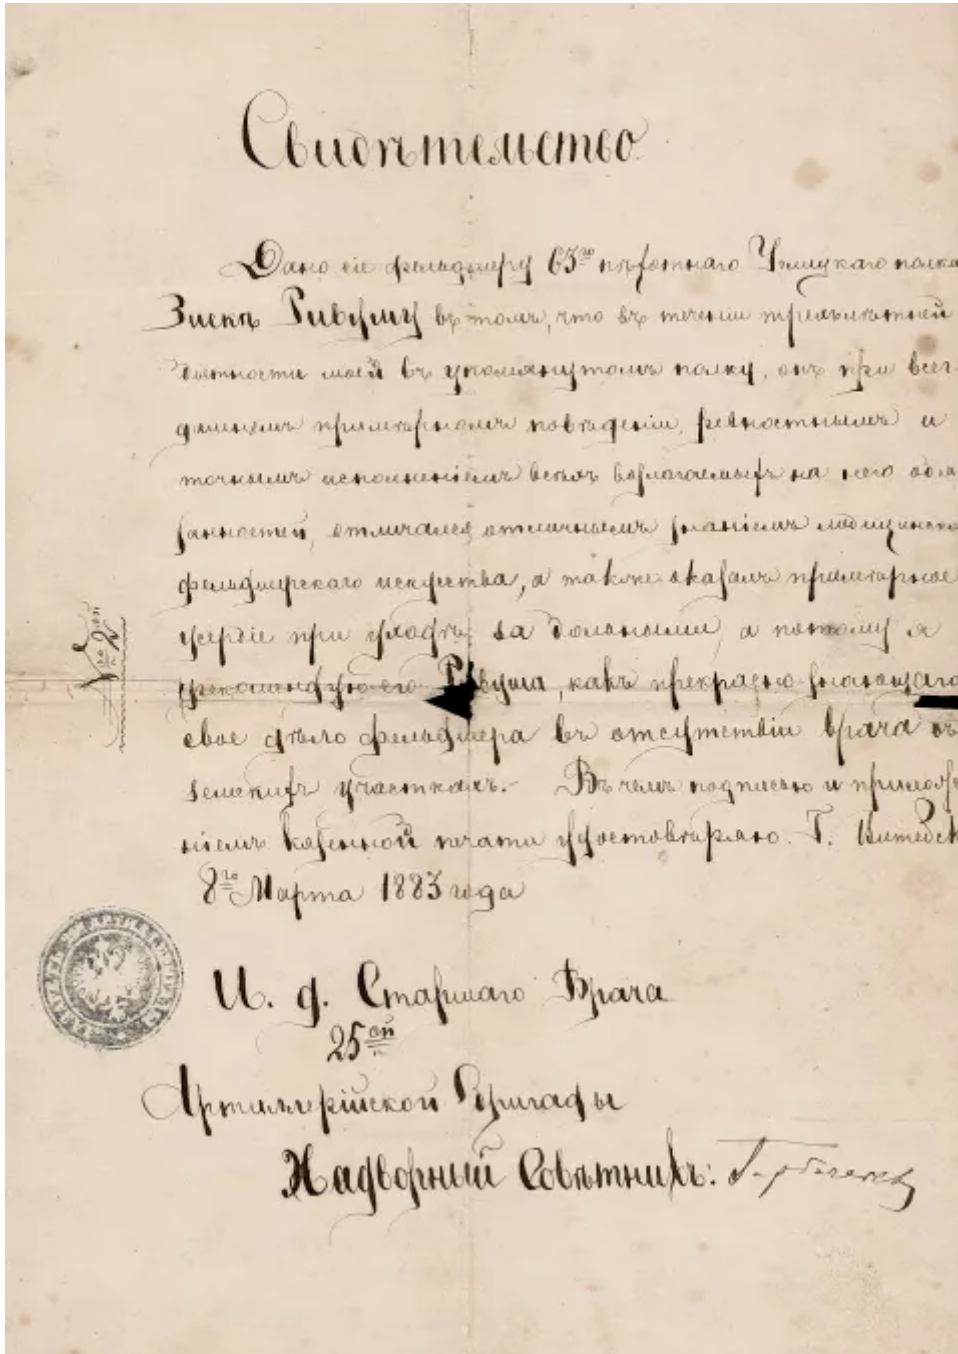 Свидѣтельство
Дано сіе фельдшеру 63го пѣхотнаго Углицкаго полка
Зискѣ Ривушу въ томъ, что въ теченіи трехълѣтней
бытности моей въ упомянутомъ полку, онъ при всег-
дашнемъ примѣрномъ поведеніи, ревностнымъ и
точнымъ исполненіемъ всѣхъ возлагаемыхъ на него обя
занностей, отличался отличнымъ знаніемъ медицинско
фельдшерскаго искуства, а также оказалъ примѣрное
усердіе при уходѣ за больными, а потому я
рекомендую его, какъ прекрасно знающаго
свое дѣло фельдшера въ отсутствіи врача въ
земскихъ участкахъ. Въ чемъ подписью и приложе
ніемъ казенной печати удостовѣряю. Г. Витебск
8го Марта 1883 года
И. д. Старшаго Врача
25ой
Артиллерійской Бригады
Надворный Совѣтникъ: